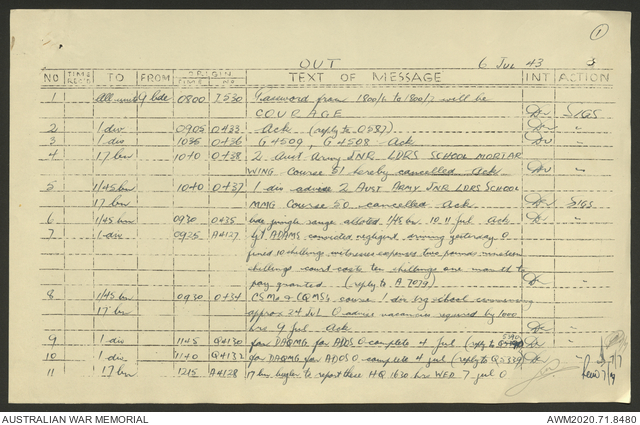 1
OUT 6 JUL 43 3
NO TIME RECD TO FROM ORIGIN TIME NO TEXT OF MESSAGE INT ACTION
1 All units 9 bde 0800 I530 Password from 1800/6 to 1800/7 will be
COURAGE SIGS
2 1 div 0905 0433 Ack (reply to 0587)
3 1 div 1035 0436 G4509, G4508 Ack
4 17 bn 1040 0438 2 Aust Army JNR LDRS SCHOOL MORTAR
WING Course 51 hereby cancelled Ack
5 1/45 bn 1040 0437 1 div advise 2 AUST ARMY JNR LDRS SCHOOL
17 bn MMG Course 50 cancelled Ack SIGS
6 1/45 bn 0930 0435 bde jungle range allotted 1/45 bn 10, 11 jul Ack
7 1 div 0925 A4127 ADAMS convicted negligent driving yesterday 0
fined 10 shillings witnesses expenses two pounds nineteen
shillings court costs ten shillings one month to
pay granted (reply to A7079)
8 1/45 bn 0930 0434 CSMs & CQMSs course 1 div school commencing
17 bn approx 24 JUL 0 advise vacancies required by 1000
hrs 9 jul Ack
9 1 div 1145 Q4130 for DAQMG for ADOS 0 complete 4 jul (reply to
10 1 div 1140 Q4132 for DAQMG for ADOS 0 complete 4 jul (reply to Q5339)
11 17 bn 1215 A4128 17 bn bugler to report these HQ 1630 hrs WED 7 jul 0
AUSTRALIAN WAR MEMORIAL AWM2020.71.8480